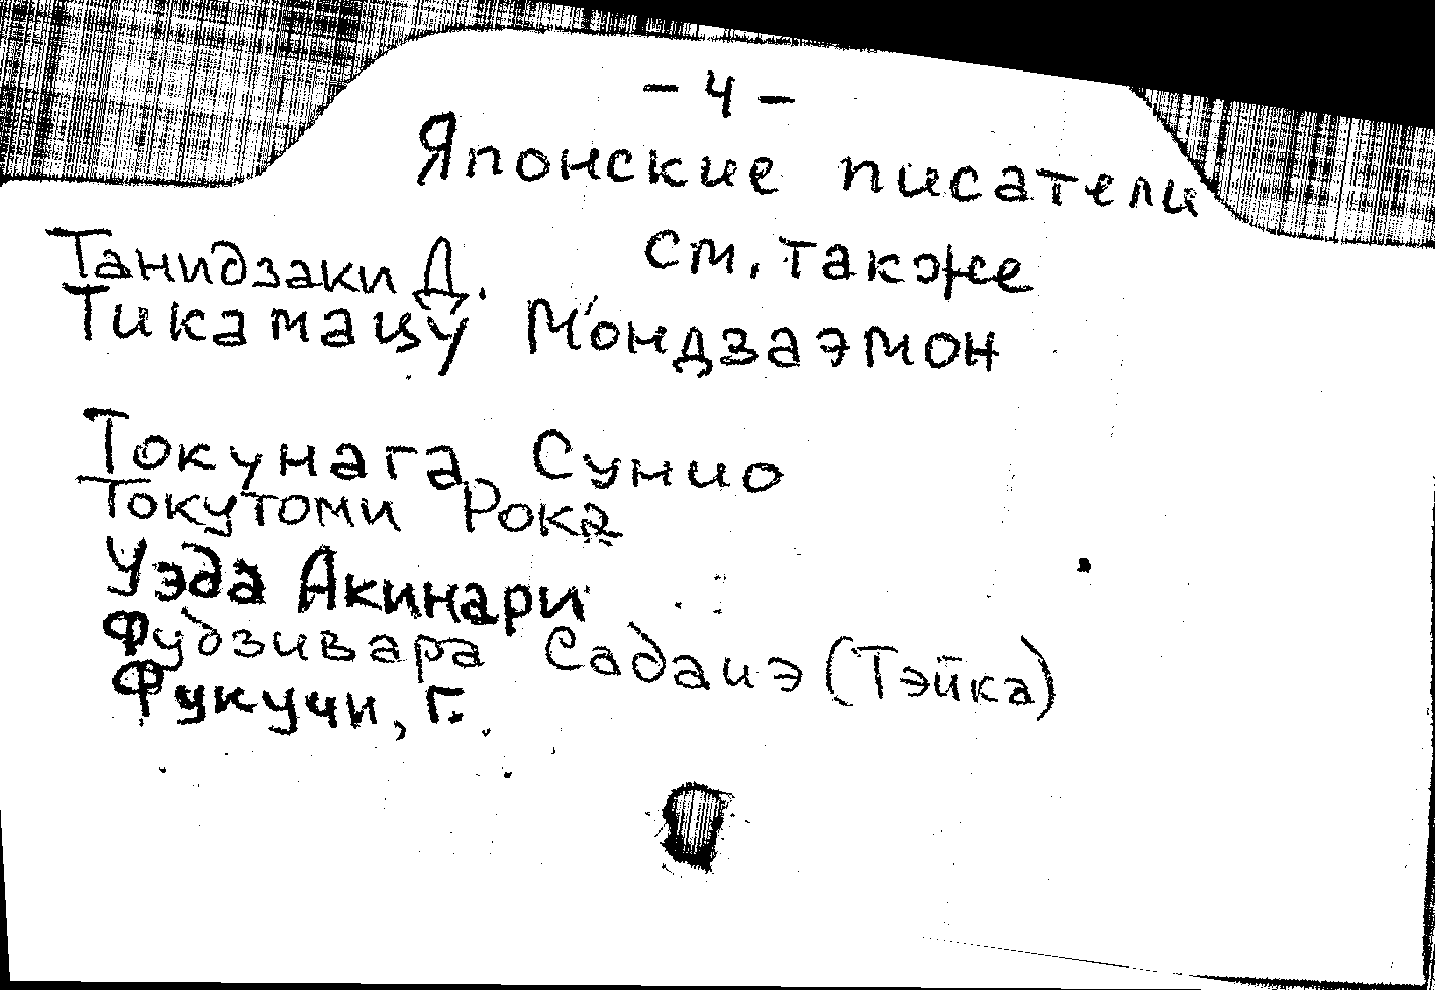 - 4 -
Японские писатели
см. также
Танидзаки Д.
Тикамацу Мондзаэмон
Токунага Сунио
Токутоми Рока
Уэда Акинари
Фудзивара Садаиэ (Тэйка)
Фукучи, Г.